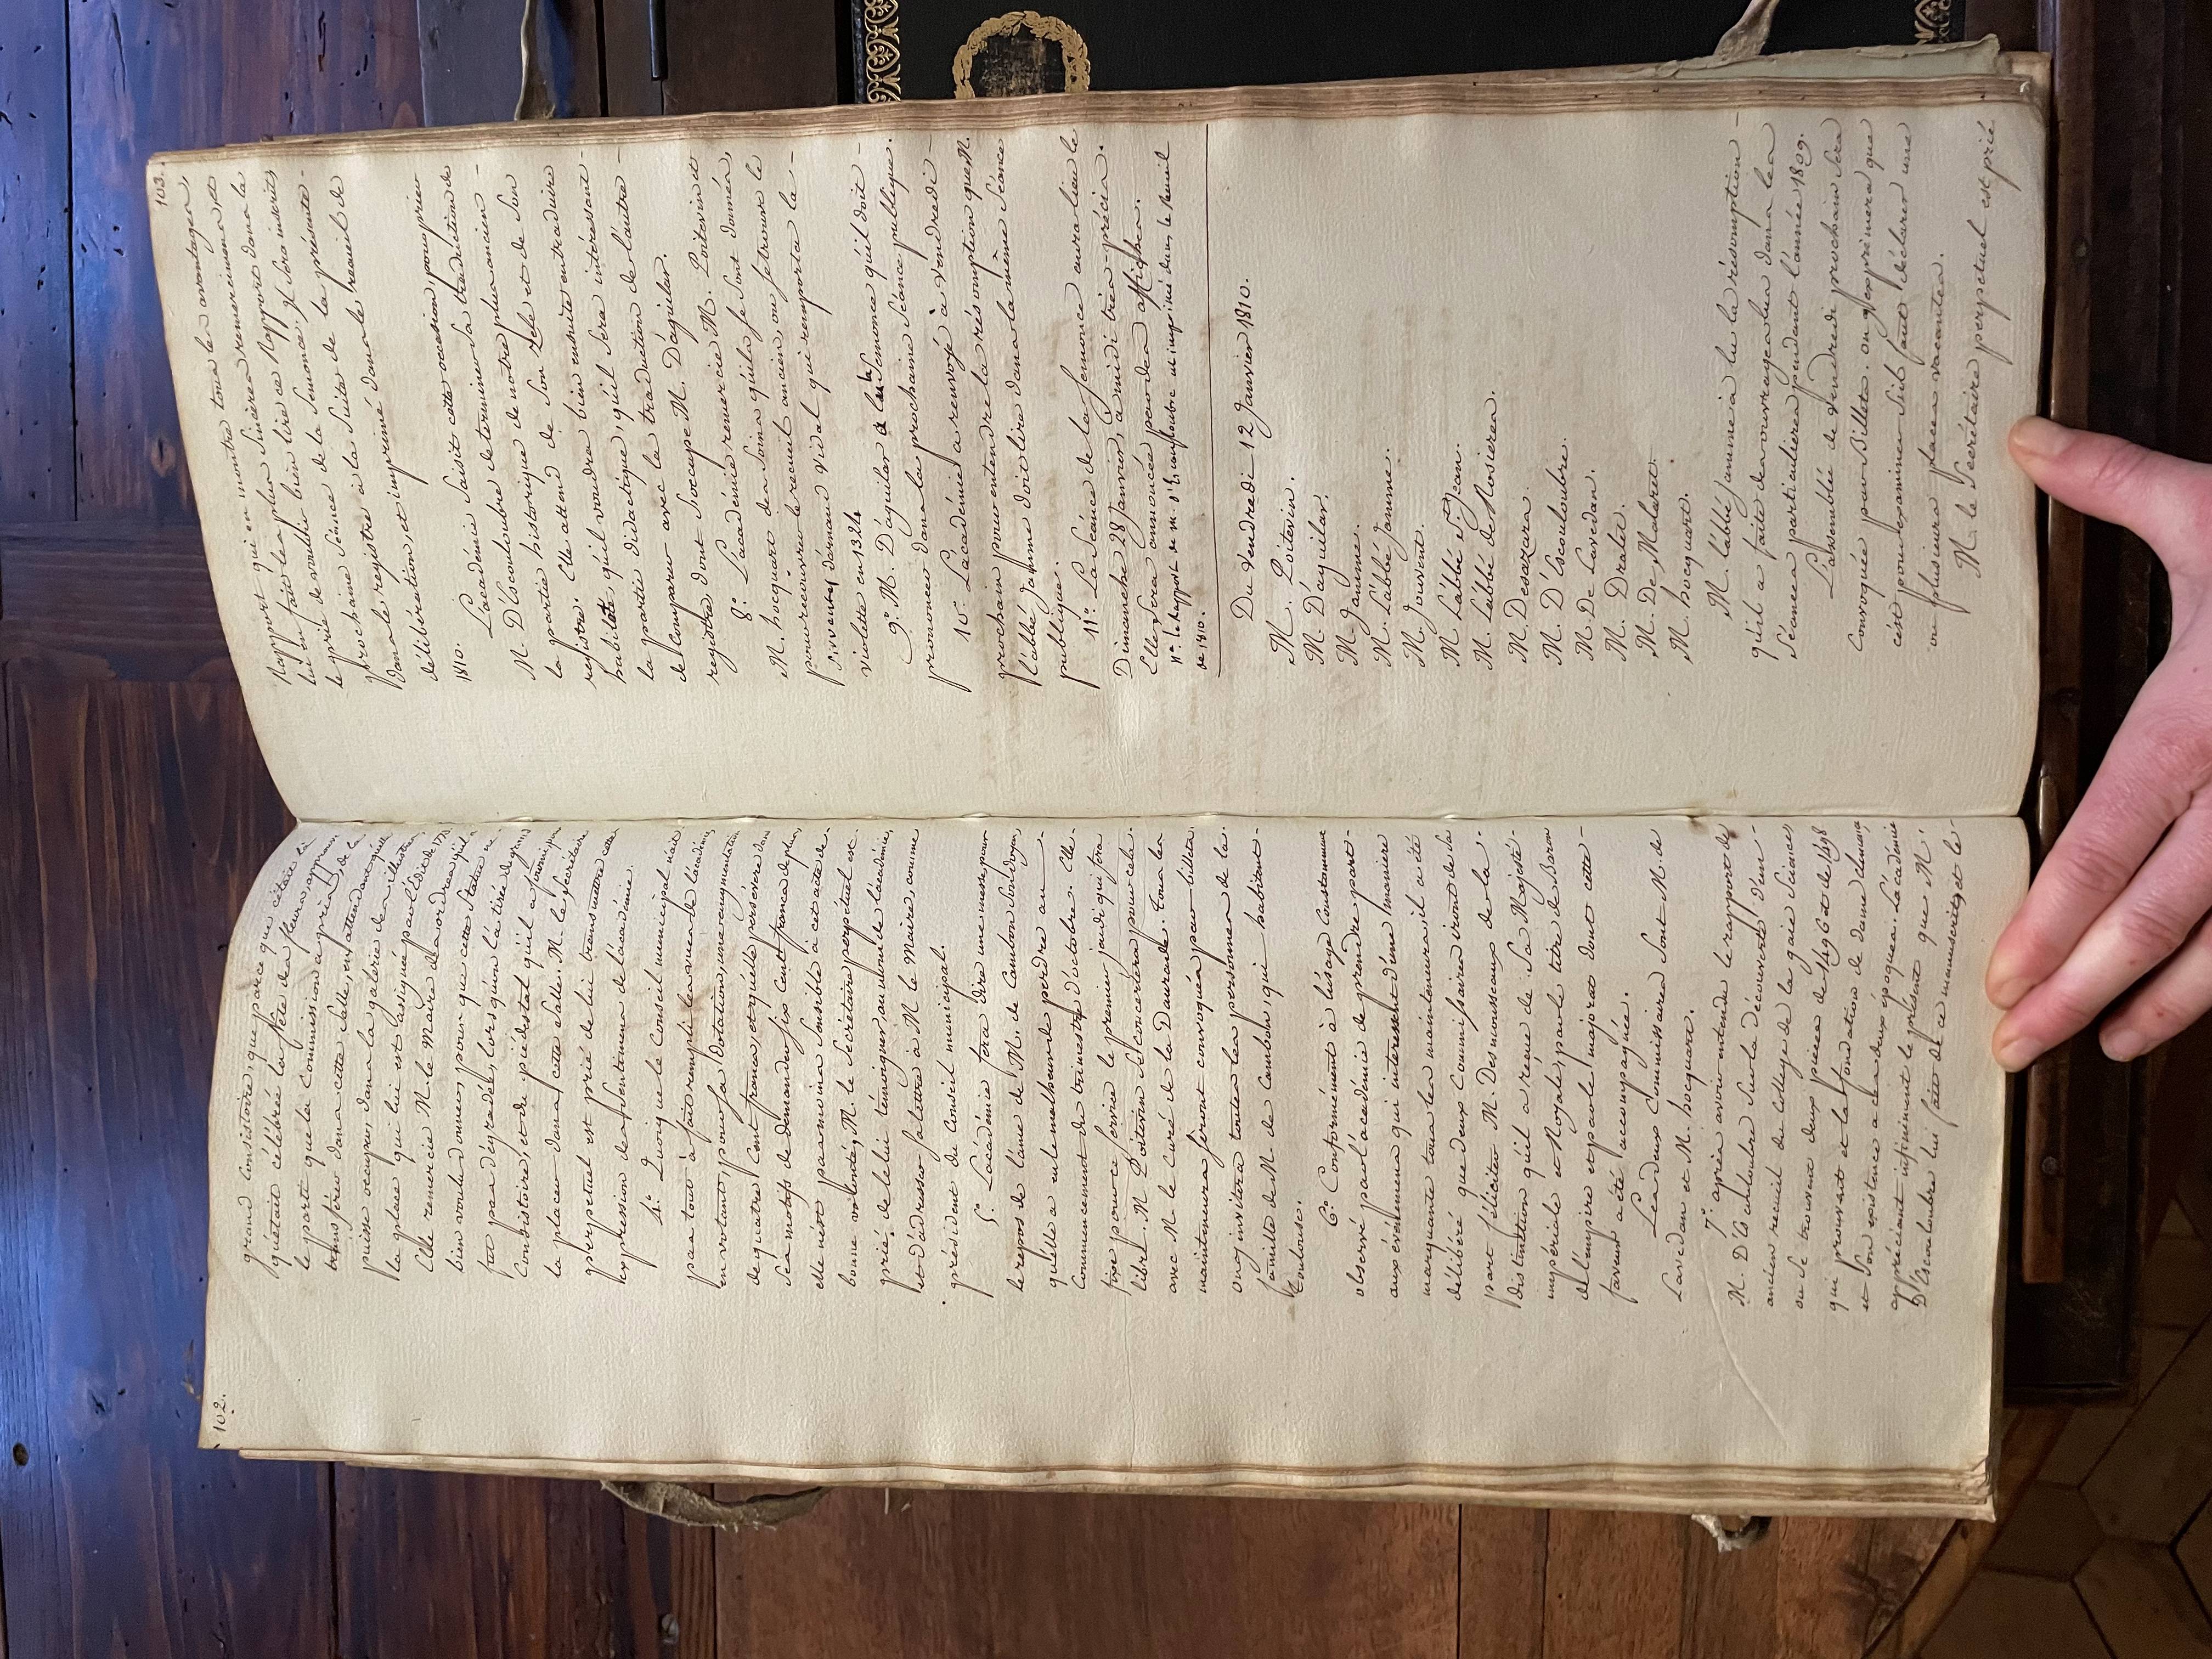 102.
grand Consistoire, que parce que c'était là
qu'était célébrée la fête des fleurs, approuve
le parti que la Commission a pris, de la
transférer dans cette Salle, en attendant qu'elle
puisse occuper, dans la galerie des illustres,
la place qui lui est assignée par l'édit de 1773
Elle remercie M. le Maire des ordres qu'il a
bien voulu donner, pour que cette Statue ne
fut pas dégradée, lorsqu'on l'a tirée du grand
Consistoire, et du piédestal qu'il a fourni pour
la placer dans cette Salle. M. le Secrétaire
perpetuel est prié de lui transmettre cette
expression des Sentimens de l'académie.
4.° Quoique le Conseil municipal n'ait
pas tout à fait rempli les vues de l'académie
en votant, pour sa Dotation, une augmentation
de quatre Cent francs, et qu'elle persévère dans
Ses motifs de demander six Cent francs de plus,
elle n'est pas moins Sensible à cet acte de
bonne volonté, M. le Secrétaire perpétuel est
prié de le lui témoigner, au nom de l'académie,
et d'adresser sa lettre à M. le Maire, comme
président du Conseil municipal.
5.° L'académie fera dire une messe, pour
le repos de l'ame de M. de Cambon Son doyen,
qu'elle a eu le malheur de perdre au
Commencement du trimestre d'octobre. Elle
fixe pour ce Service le premier jeudi qui sera
libre. M. Poitevin Se concertera pour cela
avec M. le Curé de la Daurade. Tous les
mainteneurs Seront convoqués par billets.
on y invitera toutes les personnes de la
famille de M. de Cambon, qui habitent
Toulouse.
6.° Conformément à l'usage Constamment
observé par l'académie de prendre part
aux événemens qui intéressent d'une maniere
marquante tous les mainteneurs, il a été
délibéré que deux Commissaires iront de sa
part féliciter M. Desmousseaux de la
distinction qu'il a reçue de Sa Majesté
impériale et Royale, par le titre de Baron
de l'empire et par le majorat dont cette
faveur a été accompagnée.
Les deux Commissaires Sont M. de
Lavedan et M. hocquart.
7.° après avoir entendu le rapport de
M. D'Escouloubre Sur la découverte d'un
ancien recueil du Collège de la gaie Science
ou se trouvent deux pièces de 1496 et de 1498
qui prouvent et la fondation de dame clemence,
et Son existence a ces deux époques. L'académie
appréciant infiniment le présent que M.
D'Escouloubre lui fait de ce manuscrit, et le
103.
Rapport qui en montre tous les avantages,
lui en fait les plus Sincères remercimens, et
le prie de vouloir bien lire ce Rapport dans la
prochaine Séance de la Semonce, il Sera inscrit
dans le registre à la Suite de la présente
délibération, et imprimé dans le recueil de
1810.
L'académie Saisit cette occasion, pour prier
M. D'Escouloubre de terminer Sa traduction de
la partie historique de notre plus ancien
registre. Elle attend de Son zèle et de Son
habileté qu'il voudra bien ensuite en traduire
la partie didactique, qu'il Sera intéressant
de Comparer avec la traduction de l'autre
registre dont S'occupe M. D'aguilar.
8.° L'académie remercie M. Poitevin et
M. hocquart des Soins qu'ils Se Sont donnés,
pour recouvrer le recueil ancien, ou Se trouve le
Sirventes d'Arnaud Vidal qui remporta la
violette en 1324
9.° M. D'aguilar a lu la Semonce qu'il doit
prononcer dans la prochaine Séance publique.
10.° L'académie a renvoyé à Vendredi
prochain pour entendre la résomption que M.
l'abbé Jamme doit lire dans la même Séance
publique.
11.° La Séance de la Semonce aura lieu le
Dimanche 28 Janvier, à midi très-précis.
Elle Sera annoncée par des affiches.
n.a le Rapport de M. d'Escouloubre est imprimé dans le Recueil
de 1810.
Du Vendredi 12 Janvier 1810.
M. Poitevin.
M. D'aguilar.
M. Jamme.
M. L'abbé Jamme.
M. Jouvent.
M. L'abbé St. Jean.
M. L'abbé de Rosieres.
M. Desazars.
M. D'Escouloubre.
M. De Lavedan.
M. Dralet.
M. De Malaret.
M. hocquart.
M. L'abbé Jamme a lu la résomption
qu'il a faite des ouvrages lus dans les
Séances particulières pendant l'année 1809.
L'assemblée de Vendredi prochain Sera
Convoquée par Billets. on y exprimera que
c'est pour examiner S'il faut déclarer une
ou plusieurs places vacantes.
M. le Secrétaire perpetuel est prié